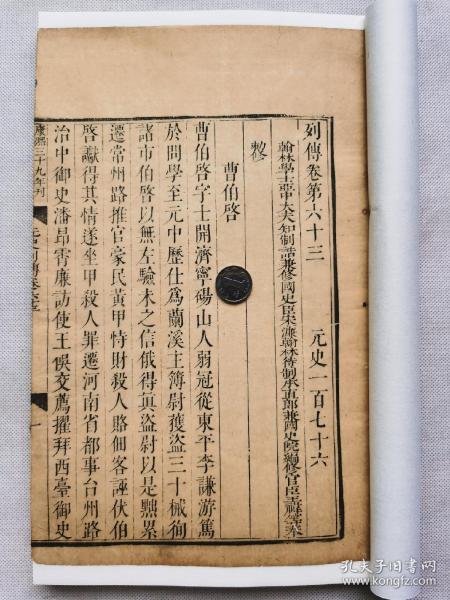 列傳卷第六十三 元史一百七十六
翰林學士亞中大夫知制誥兼修國史臣宋濂翰林待制承直郎兼國史院編修官臣王禕等奉
敕修
曹伯啓
曹伯啓字士開濟寧碭山人弱冠從東平李謙游篤
於問學至元中歷仕爲蘭溪主簿尉獲盜三十械徇
諸市伯啓以無左驗未之信俄得眞盜尉以是黜累
遷常州路推官豪民黃甲恃財殺人賂佃客誣伏伯
啓讞得其情遂坐甲殺人罪遷河南省都事台州路
治中御史潘昂霄廉訪使王俁交薦擢拜西臺御史
康熙三十九年刊
一
孔夫子旧书网
www.kongfz.com